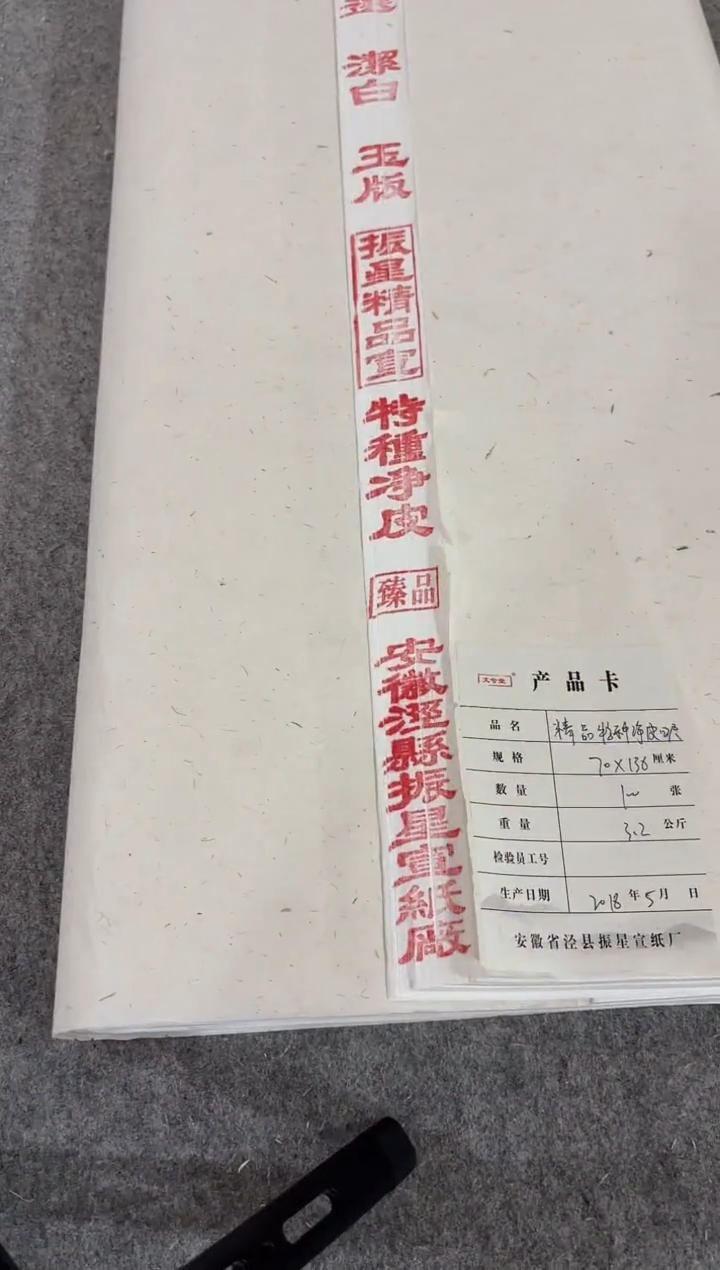 潔白
玉版
振星精品宣
特種净皮
臻品
安徽涇縣振星宣紙廠
产品卡
品名 精品特种净皮四尺
规格 70×138 厘米
数量 100 张
重量 3.2 公斤
检验员工号
生产日期 2018 年 5 月 日
安徽省泾县振星宣纸厂